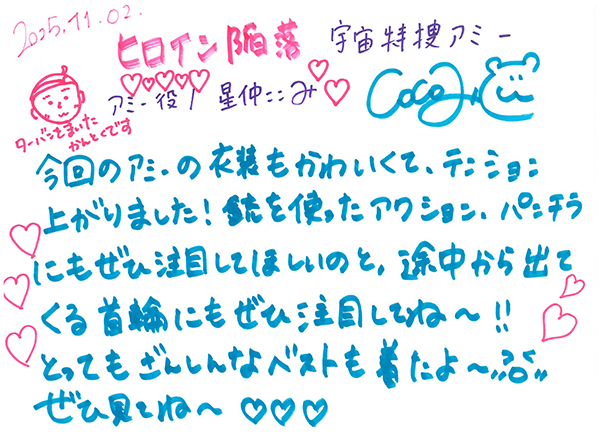 2025.11.02.
ヒロイン陥落 宇宙特捜アミー
アミー役/星仲ここみ♡♡
ターバンをまいた
かんとくです
今回のアミーの衣装もかわいくて、テンション
上がりました!銃を使ったアクション、パンチラ
にもぜひ注目してほしいのと、途中から出て
くる首輪にもぜひ注目してね〜!!
とってもざんしんなベストも着たよ〜
ぜひ見てね〜♡♡♡